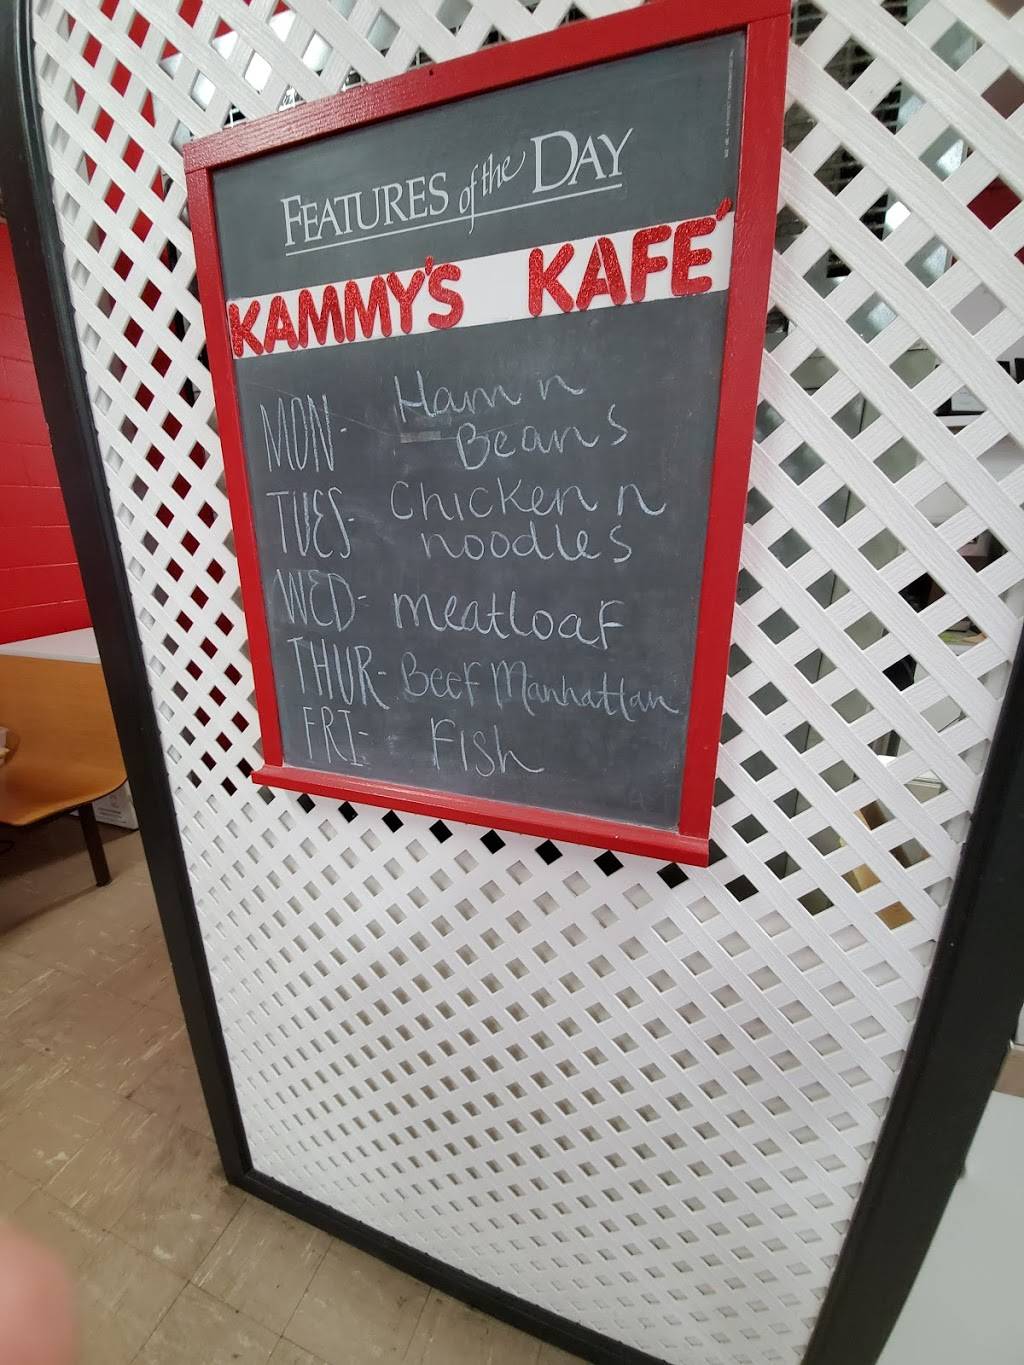 FEATURES of the DAY
KAMMY'S KAFÉ
MON- Ham n
Beans
TUES- Chicken n
noodles
WED- meatloaf
THUR- Beef Manhattan
FRI- Fish